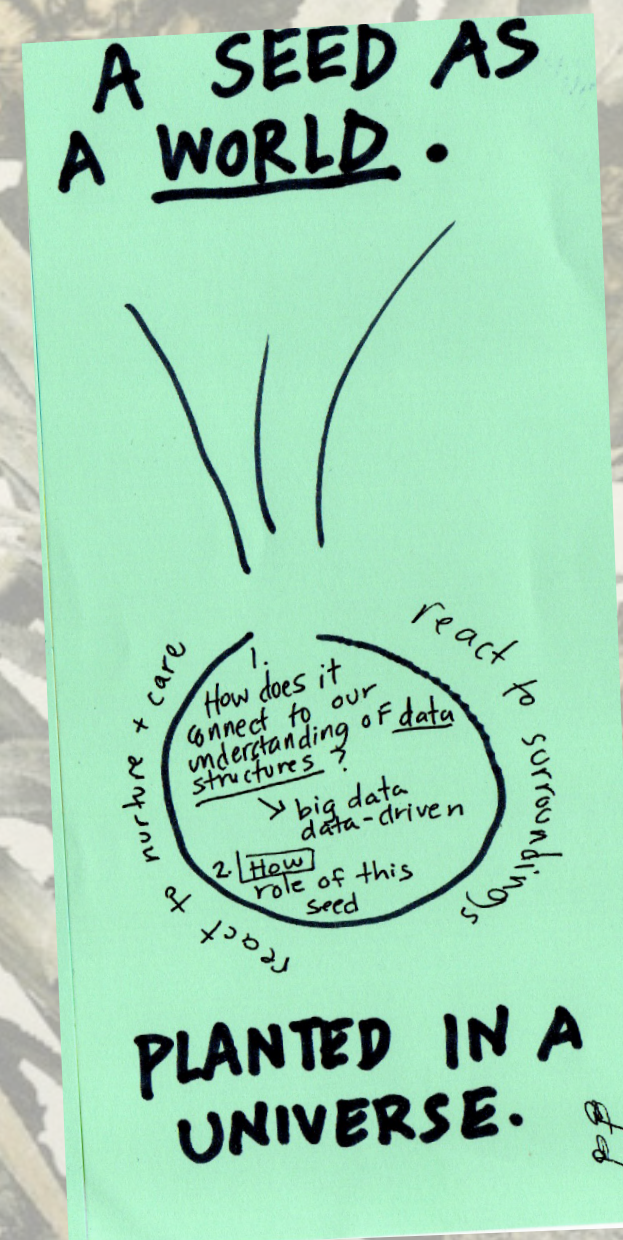 A SEED AS
A WORLD.
react to nurture + care
react to surroundings
1.
How does it
connect to our
understanding of data
structures ?
↘ big data
data-driven
2. How
role of this
seed
PLANTED IN A
UNIVERSE.